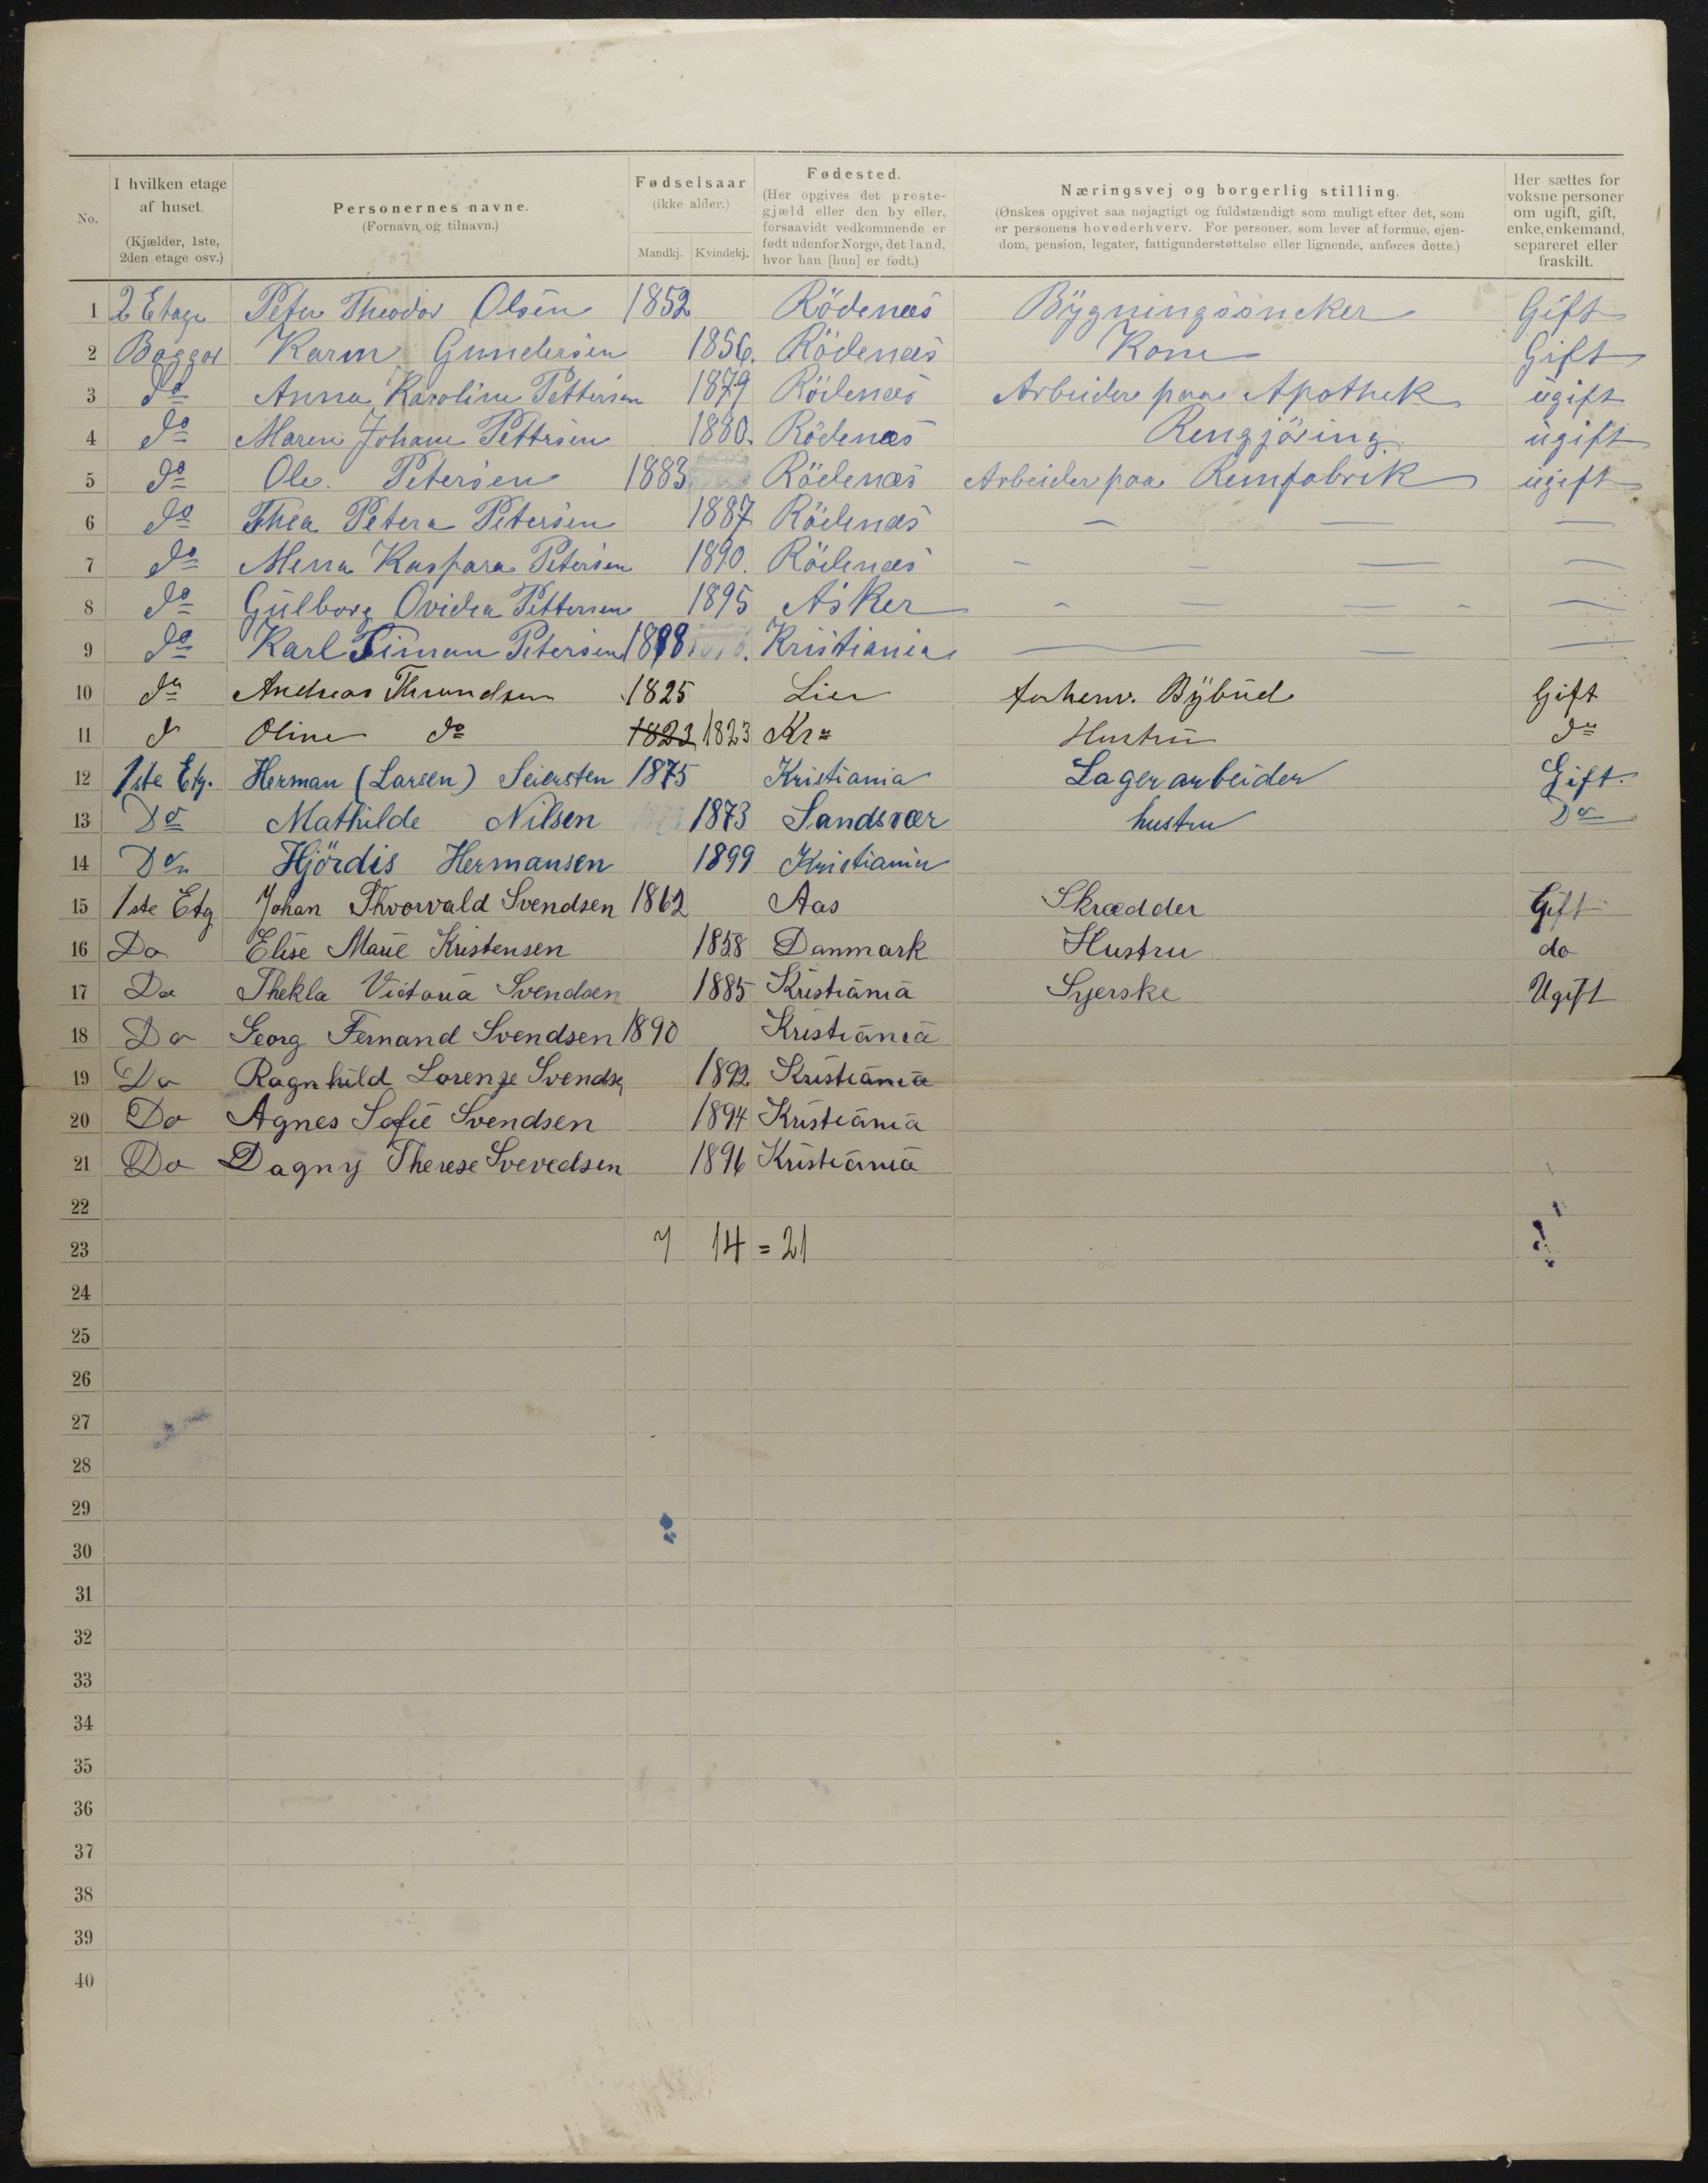 No. | I hvilken etage af huset. (Kjælder, 1ste, 2den etage osv.) | Personernes navne. (Fornavn og tilnavn.) | Fødselsaar (ikke alder.) Mandkj. Kvindekj. | Fødested. (Her opgives det prestegjæld eller den by eller, forsaavidt vedkommende er født udenfor Norge, det land, hvor han [hun] er født.) | Næringsvej og borgerlig stilling. (Ønskes opgivet saa nøjagtigt og fuldstændigt som muligt efter det, som er personens hovederhverv. For personer, som lever af formue, ejendom, pension, legater, fattigunderstøttelse eller lignende, anføres dette.) | Her sættes for voksne personer om ugift, gift, enke, enkemand, separeret eller fraskilt.
1 2 Etage Peter Theodor Olsen 1852 Rödenæs Bygningssneker Gift
2 Baggor Karin Gundersen 1856. Rödenæs Kone Gift
3 do Anna Karoline Pettersen 1879 Rödenæs Arbeider paa Apothek ugift
4 do Maren Johane Pettersen 1880. Rödenæs Rengjöring ugift
5 do Ole. Petersen 1883 Rödenæs Arbeider paa Remfabrik ugift
6 do Thea Petera Petersen 1887 Rödenæs — — —
7 do Menna Kaspara Petersen 1890. Rödenæs - – — –
8 do Gulborg Ovidia Pettersen 1895 Asker - — — - —
9 do Karl Siman Petersen 1898 Kristiania — — — —
10 do Andreas Thrundsen 1825 Lier forhenv. Bybud Gift
11 d Oline do 1823 1823 Kra Hustru do
12 1ste Etg. Herman (Larsen) Seiersten 1875 Kristiania Lagerarbeider Gift.
13 Do Mathilde Nilsen 1873 Sandsvær hustru Do
14 Do Hjördis Hermansen 1899 Kristiania
15 1ste Etg Johan Thvorvald Svendsen 1862 Aas Skrædder Gift
16 Do Elise Marie Kristensen 1858 Danmark Hustru do
17 Do Thekla Victoria Svendsen 1885 Kristiania Syerske Ugift
18 Do Georg Fernand Svendsen 1890 Kristiania
19 Do Ragnhild Lorenze Svends 1892 Kristiania
20 Do Agnes Sofie Svendsen 1894 Kristiania
21 Do Dagny Therese Svevedsen 1896 Kristiania
22
23 7 14 = 21
24
25
26
27
28
29
30
31
32
33
34
35
36
37
38
39
40